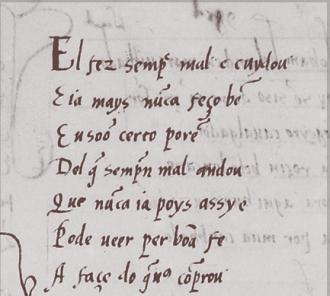 El fez semp̃ mal e cuydou
E ia mays nũca feço bẽ
E u soo certo porẽ
Del q̃ sempn mal andou
Que nũca ia poys assy e
Pode ueer per bõa fe
A façe do q̃ no cõprou